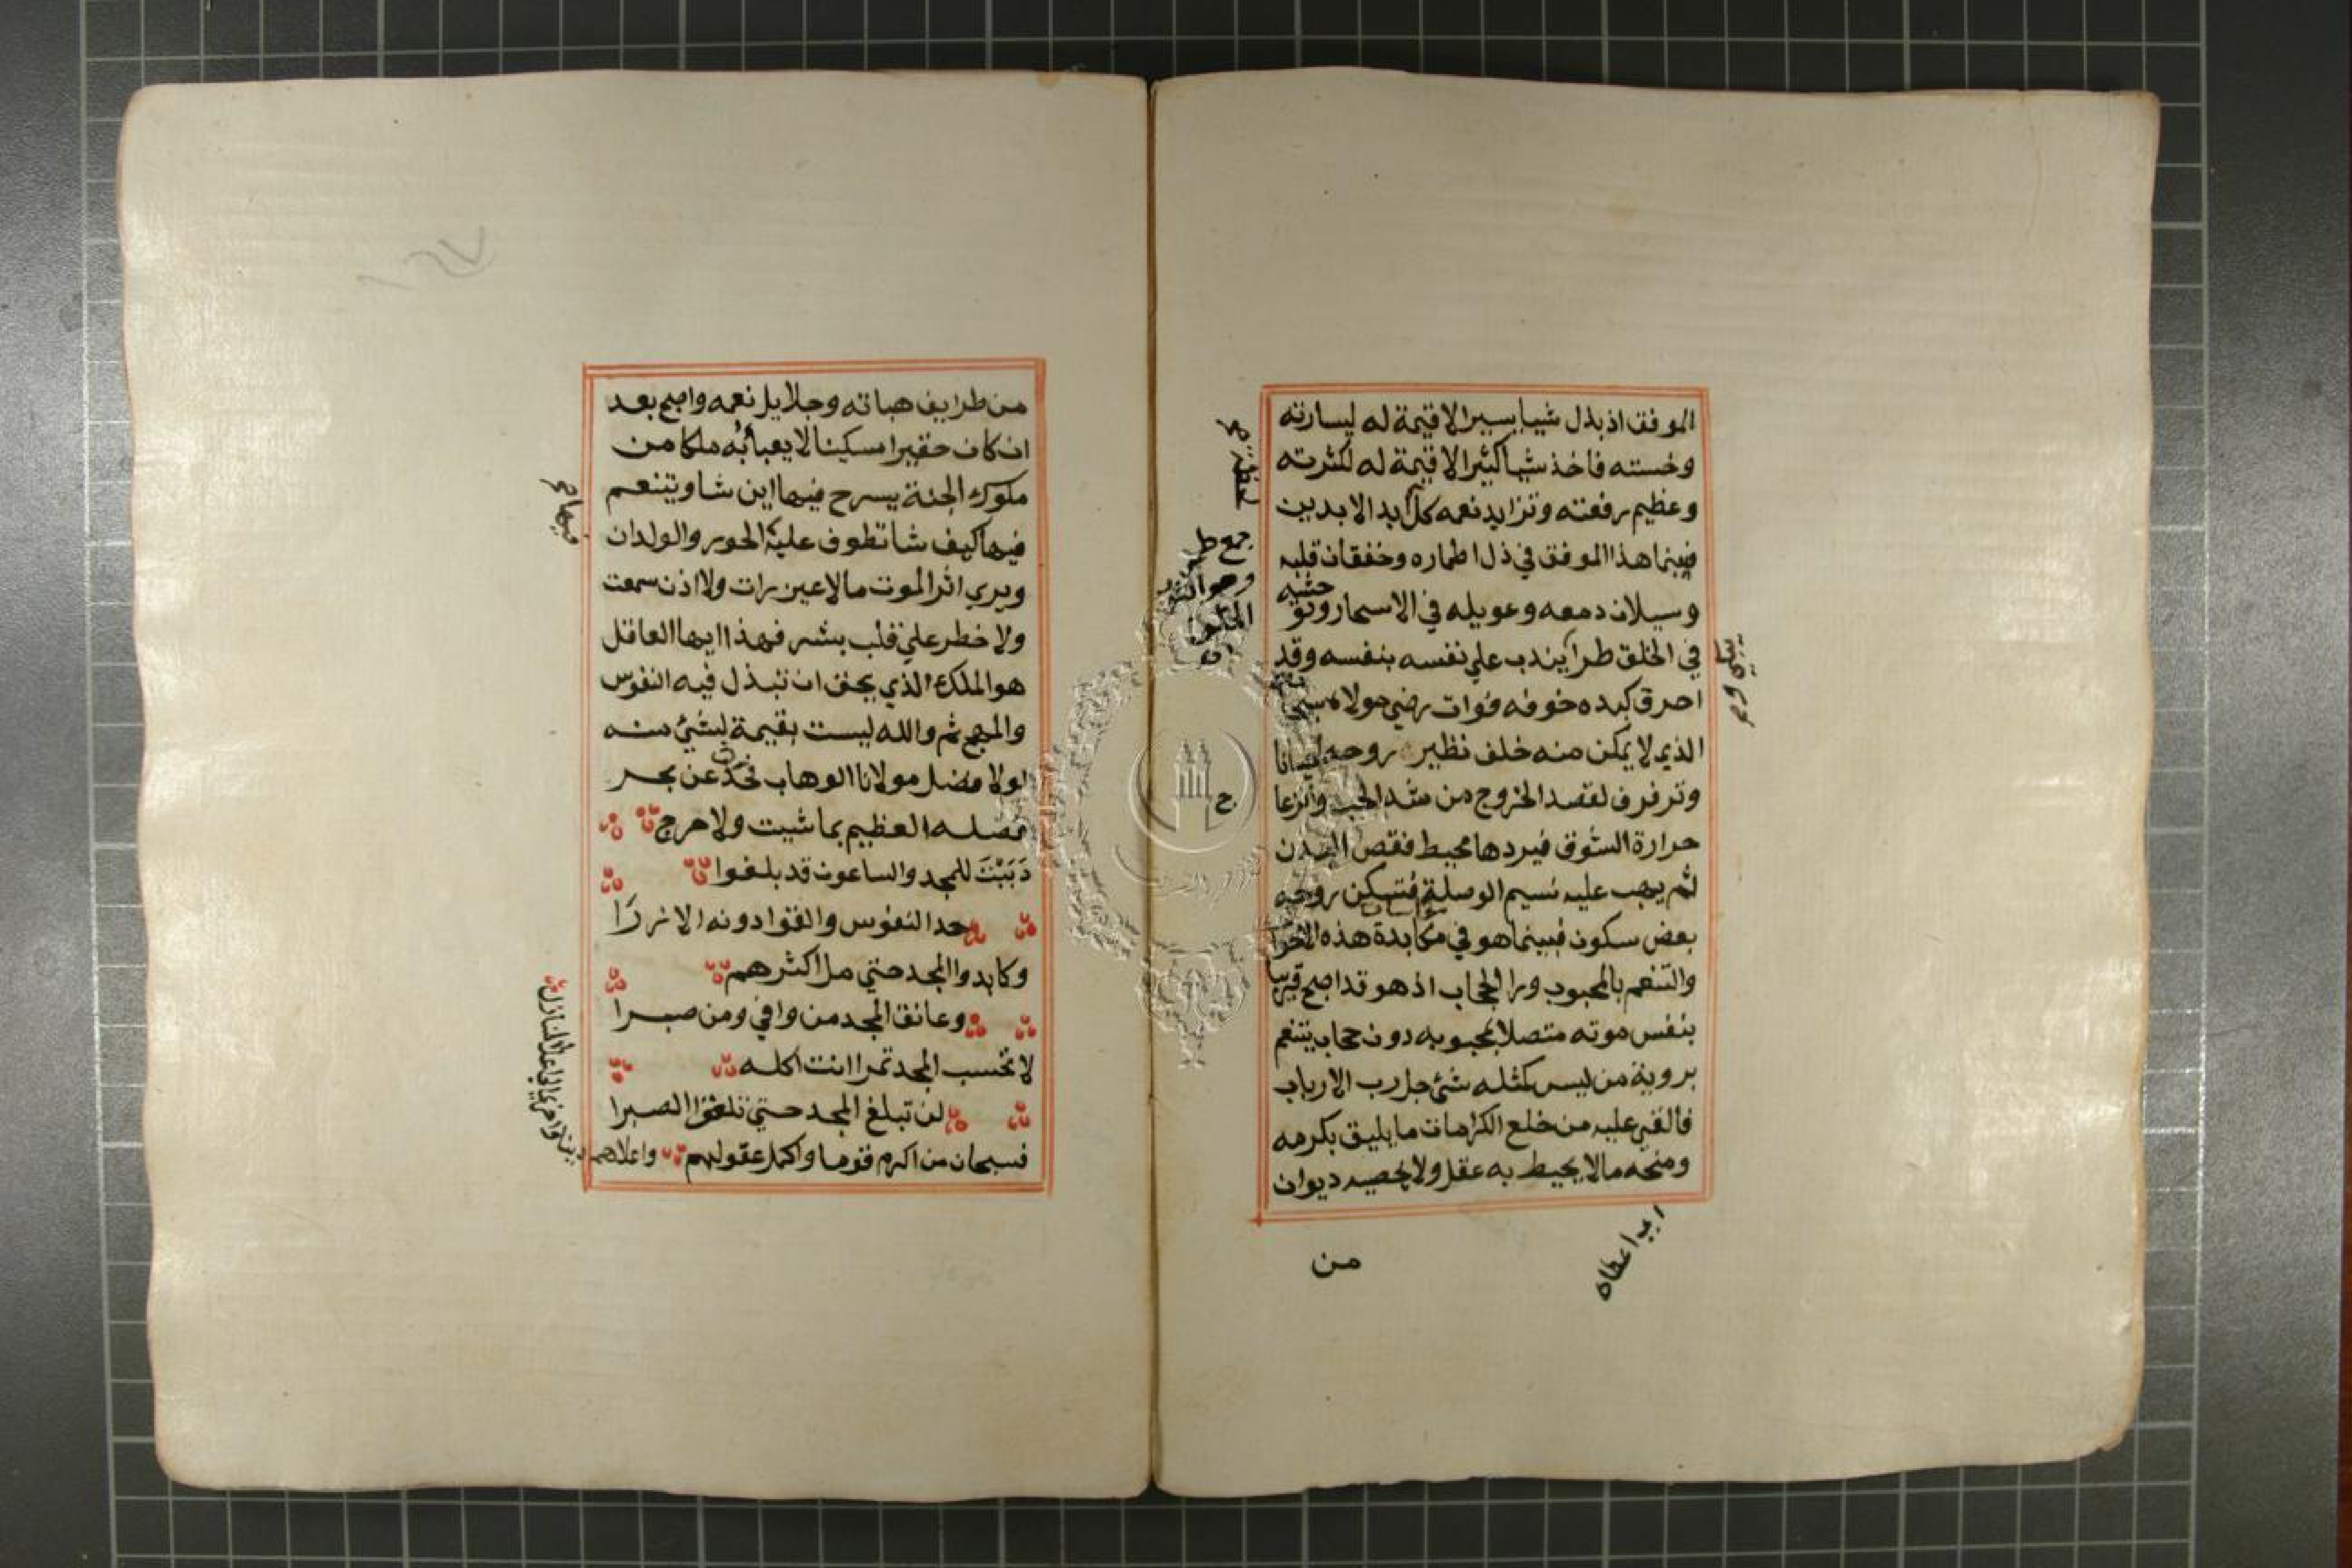 الموفق اذ بذل شيا يسيرا لا قيمة له ليسارته
وخسته فاخذ شيا كثيرا لا قيمة له لكثرته
وعظيم رفعته وتزايد نعمه كل ابد الابدين
فبينما هذا الموفق في ذل اطماره وخفقان قلبه
وسيلان دمعه وعويله في الاسحار وتوحشه
في الخلق طرا يندب علي نفسه بنفسه وقد
احرق كبده خوفه فوات رضي مولاه
الذي لا يمكن منه خلف نظير روحه احيانا
وترفرف لقصد الخروج من شد الحب
حرارة الشوق فيردها محيط قفص البدن
ثم يهب عليه نسيم الوصلة فتسكن روحه
بعض سكون فبينما هو في مكابدة هذه الاحزان
والتنعم بالمحبوب ورا الحجاب اذ هو قد اصبح قريبا
بنفس موته متصلا بمحبوبه دون حجاب يتنعم
بروية من ليس كمثله شئ جل رب الارباب
فالقي عليه من خلع الكرامات ما يليق بكرمه
ومنحه مالا يحيط به عقل ولا يحصيه ديوان
من
جمع طمر
وهو الثوب
الخلق
من طرايف هباته وجلايل نعمه واصبح بعد
ان كان حقيرا مسكينا لا يعبأ به ملكا من
ملوك الجنة يسرح فيها اين شا ويتنعم
فيها كيف شا تطوف عليه الحور والولدان
ويري اثر الموت مالا عين رات ولا اذن سمعت
ولا خطر علي قلب بشر فهذا ايها العاقل
هو الملك الذي يحق ان تبذل فيه النفوس
والمهج ثم والله ليست بقيمة لشئ منه
لولا فضل مولانا الوهاب فحدث عن بحر
فضله العظيم بما شيت ولا حرج
دَبَبْتَ للمجد والساعون قد بلغوا
جهد النفوس والقوا دونه الازرا
وكابدوا المجد حتي مل اكثرهم
وعانق المجد من وافي ومن صبرا
لا تحسب المجد تمرا انت اكله
لن تبلغ المجد حتي تلعق الصبرا
فسبحان من اكرم قوما واكمل عقولهم واعلاهم